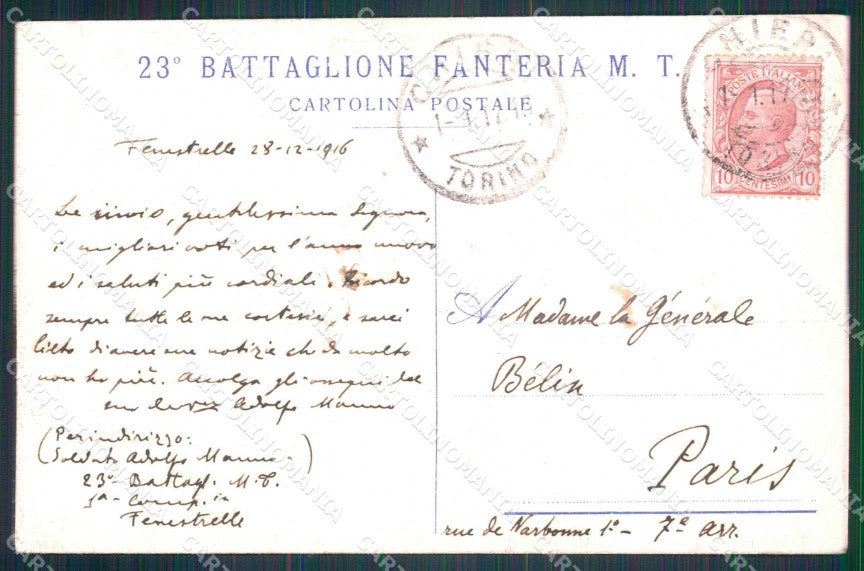 23° BATTAGLIONE FANTERIA M. T.
CARTOLINA POSTALE
TORINO
POSTE ITALIANE
10 CENTESIMI 10
Fenestrelle 28-12-1916
Le invio, gentilissima Signora,
i migliori voti per l'anno nuovo
ed i saluti più cordiali. Ricordo
sempre tutte le sue cortesie, e sarei
lieto di avere sue notizie che da molto
non ho più. Accolga gli ossequi del
suo Adolfo Manno
(Per indirizzo:
Soldato Adolfo Manno)
23° Battagl. M. T.
1ª Comp.ia
Fenestrelle
A Madame la Générale
Bélin
Paris
rue de Narbonne 1° - 7e arr.
CARTOLINOMANIA